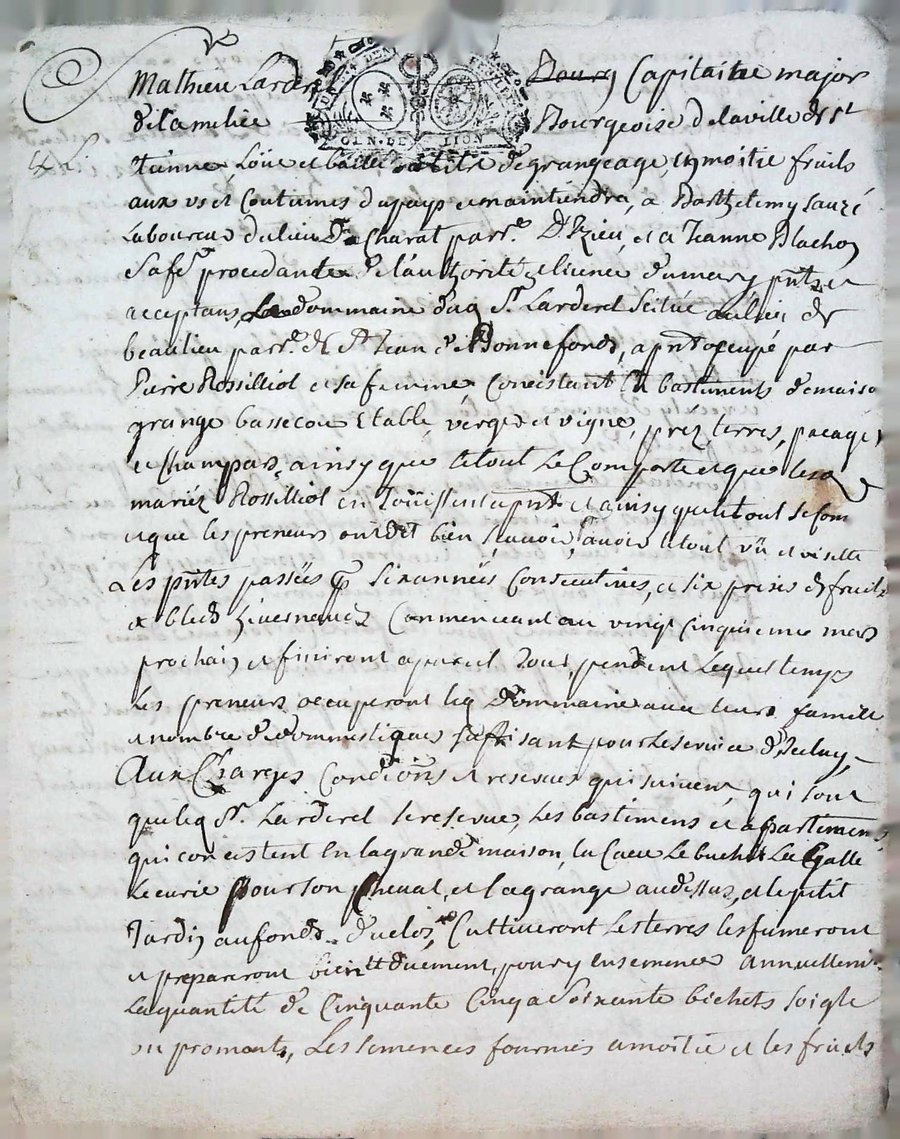 Mathieu Larderel Bourg Capitaine major
GEN. DE LION
de la milice Bourgeoise de la ville de St
Etienne, Loüe et baille a titre de grangeage, en moitie fruits
aux us et Coutumes du pays et maintiendra, a Barthelemy Sauzé
Laboureur du lieu de Charat parr.e D'Izieu, et a Jeanne Blachon
sa fe. procedante de l'authorité et licence dumary pnts et
acceptans, Le dommaine dud Sr. Larderel scitué aulieu de
beaulieu parr.e de St Jean de Bonnefonds, a pnt ocupé par
Pierre Rossilliol et sa femme, Consistant En bastiments de maison
grange bassecour Etable, verger et vigne, prez, terres, pacages
et Champars, ainsy que le tout se Comporte et que lesd
mariéz Rossilliol en Joüissent apnt et ainsy que le tout se Com
et que les preneurs ont dit bien sçavoir, avoir le tout vû et visitté
Les pntes passées pr six années Consecutives, et six prises de fruits
et bleds hivernaux Commenceant au vingt cinquieme mars
prochain et finiront a pareil Jour, pendant Lequel temps
Les preneurs occuperont led dommaine avec leurs famille
et nombre de dommestiques suffisant pour le service d'Iceluy,
Aux Charges Condições et reserves qui suivent, qui sont
que led Sr. Larderel se reserve, Les bastimens et apartemens,
qui consistent En la grande maison, la Cave Le bucher La Salle
Lecurie pour son Cheval, et la grange au dessus, et le petit
Jardin au fonds du clos, Cultiveront Les terres les fumeront
et prepareront bien et duement, pour y ensemencer annuellemt
La quantité de Cinquante Cinq a soixante bichets soigle
ou froments, Les semences fournies a moitie et les fruits